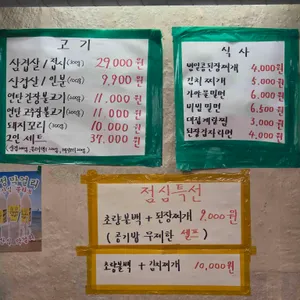 고기
삼겹살/접시(300g) 29,000원
삼겹살/인분(100g) 9,900원
연탄 간장불고기 11,000원
연탄 고추장불고기 11,000원
돼지꼬리 (300g) 10,000원
2인 세트 37,000원
식사
된장찌개 4,000원
김치찌개 5,000원
6,000원
비빔밀면 6,500원
계란찜 3,000원
4,000원
점심특선
초당불백 + 된장찌개 9,000원
(공기밥 무제한 셀프)
초당불백 + 김치찌개 10,000원